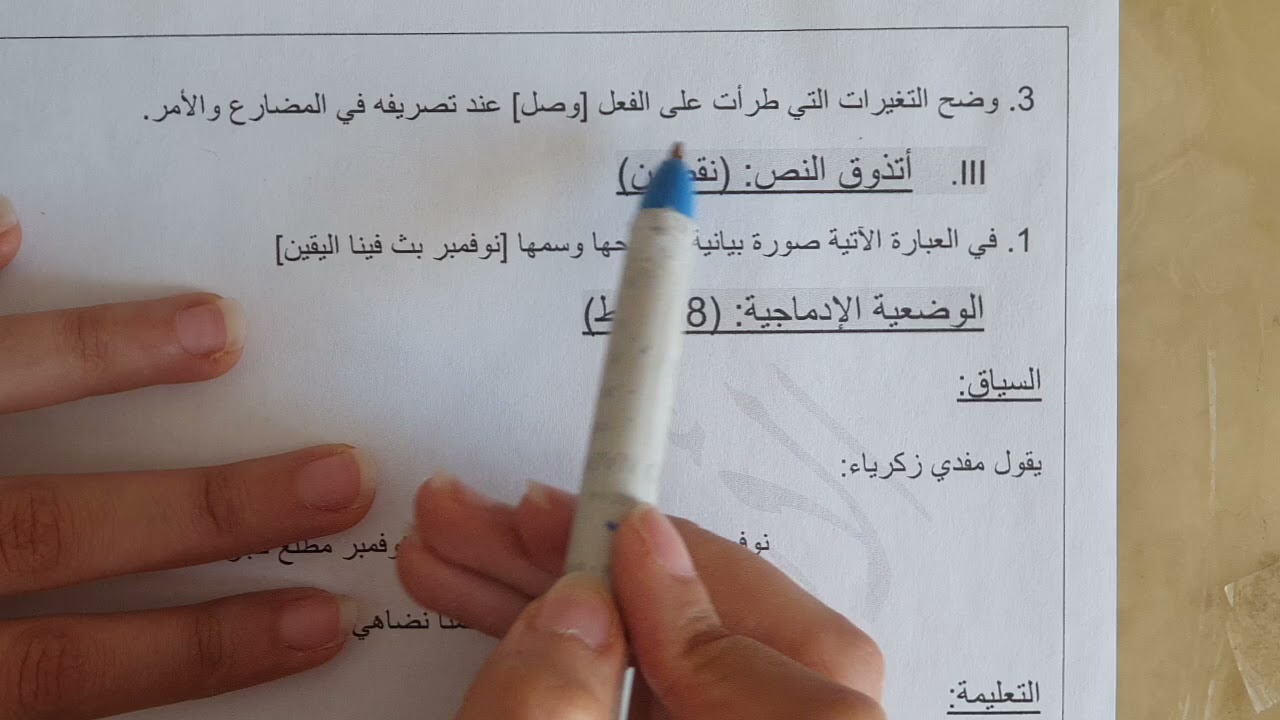 3. وضح التغيرات التي طرأت على الفعل [وصل] عند تصريفه في المضارع والأمر.
III. أتذوق النص:
1. في العبارة الآتية صورة بيانية وسمها [نوفمبر بث فينا اليقين]
الوضعية الإدماجية: (8
السياق:
يقول مفدي زكرياء:
مطلع
نضاهي
التعليمة: